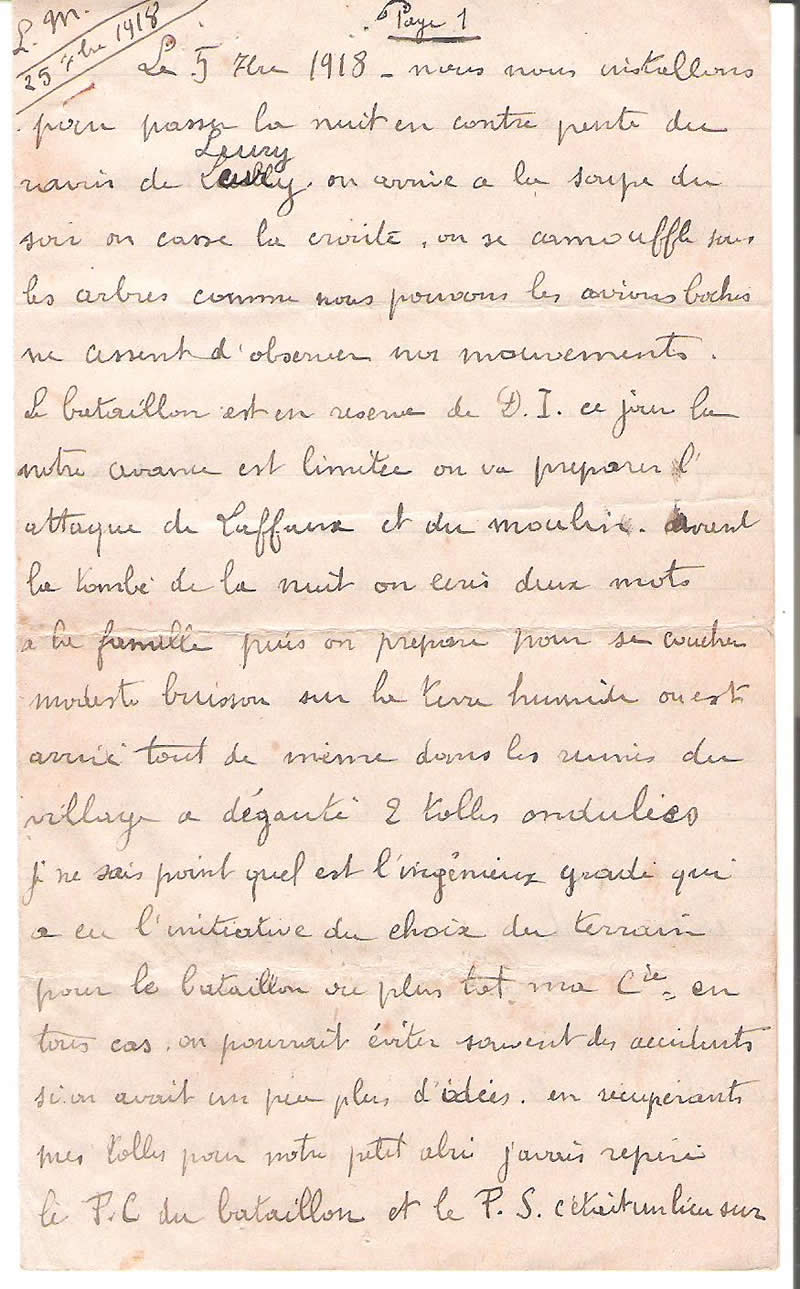 Page 1
L. M.
25 7bre 1918
Le 5 7bre 1918 - nous nous installons
pour passer la nuit en contre pente du
Leury
ravin de on arrive a la soupe du
soir on casse la croute, on se camouffle sous
les arbres comme nous pouvons les avions boches
ne cessent d'observer nos mouvements.
Le bataillon est en reserve de D. I. ce jour la
notre avance est limitée on va preparer l'
attaque de Laffaux et du moulin. avant
la tombé de la nuit on ecris deux mots
a la famille puis on prepare pour se coucher
modeste buisson sur la terre humide on est
arrivé tout de même dans les ruines du
village a déganté 2 tolles ondulées
Je ne sais point quel est l'ingénieux gradé qui
a eu l'initiative du choix du terrain
pour le bataillon ou plus tot ma Cie - en
tous cas. on pourrait éviter souvent des accidents
si on avait un peu plus d'idées. en recupérants
mes tolles pour notre petit abri j'avais repéré
le P.C du bataillon et le P. S. c'était un lieu sur